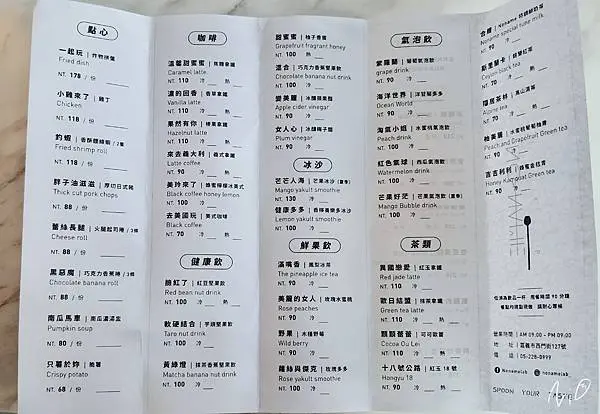 點心
一起玩 | 炸物拼盤
Fried dish
NT. 178 / 份
小雞來了 | 雞丁
Chicken
NT. 118 / 份
釣蝦 | 香酥麵線蝦 / 2隻
Fried shrimp roll
NT. 118 / 份
胖子油滋滋 | 厚切日式豬
Thick cut pork chops
NT. 88 / 份
蕾絲長腿 | 火腿起司捲 / 3條
Cheese roll
NT. 88 / 份
黑惡魔 | 巧克力香蕉捲 / 3條
Chocolate banana roll
NT. 88 / 份
南瓜馬車 | 南瓜濃湯盅
Pumpkin soup
NT. 80 / 份
只薯於妳 | 脆薯
Crispy potato
NT. 68 / 份
咖啡
溫馨甜蜜蜜 | 焦糖拿鐵
Caramel latte
NT. 110 冷 熱
濃的回香 | 香草拿鐵
Vanilla latte
NT. 110 冷 熱
果然有你 | 榛果拿鐵
Hazelnut latte
NT. 110 冷 熱
來去義大利 | 義式拿鐵
Latte coffee
NT. 90 冷 熱
美玲來了 | 蜂蜜檸檬冰美式
Black coffee honey lemon
NT. 100 冷
去美國玩 | 美式咖啡
Black coffee
NT. 70 冷 熱
健康飲
臉紅了 | 紅豆堅果飲
Red bean nut drink
NT. 100 冷 熱
軟硬結合 | 芋頭堅果飲
Taro nut drink
NT. 100 冷 熱
黃綠燈 | 抹茶香蕉堅果飲
Matcha banana nut drink
NT. 100 冷
甜蜜蜜 | 柚子香蜜
Grapefruit fragrant honey
NT. 100 冷 熱
混合 | 巧克力香蕉堅果飲
Chocolate banana nut drink
NT. 100 冷
變美麗 | 冰釀蘋果醋
Apple cider vinegar
NT. 90 冷
女人心 | 冰釀梅子醋
Plum vinegar
NT. 90 冷
冰沙
芒芒人海 | 芒果冰沙（夏季）
Mango yakult smoothie
NT. 130 冷
健康多多 | 香檸養樂多冰沙
Lemon yakult smoothie
NT. 100 冷
鮮果飲
滿嘴香 | 鳳梨冰茶
The pineapple ice tea
NT. 90 冷
美麗的女人 | 玫瑰水蜜桃
Rose peaches
NT. 90 冷
野果 | 木梗野莓
Wild berry
NT. 90 冷
蘿絲與傑克 | 玫瑰多多
Rose yakult smoothie
NT. 100 冷
氣泡飲
紫羅蘭 | 葡萄氣泡飲
grape drink
NT. 90 冷
海洋世界 | 洋甘菊多多
Ocean World
NT. 90 冷
淘氣小姐 | 水蜜桃氣泡飲
Peach drink
NT. 90 冷
紅色氣球 | 西瓜氣泡飲
Watermelon drink
NT. 100 冷
芒果好茫 | 芒果氣泡飲（夏季）
Mango Bubble drink
NT. 100 冷
茶類
異國戀愛 | 紅玉拿鐵
Red jade latte
NT. 110 冷 熱
歐日結盟 | 抹茶拿鐵
Green tea latte
NT. 110 冷 熱
顆顆蕾蕾 | 可可歐蕾
Cocoa Ou Lei
NT. 110 冷 熱
十八號公路 | 紅玉 18 號
Hongyu 18
NT. 90 冷 熱
Noname special tune milk
NT. 90 冷
斯里蘭卡 | 錫蘭紅茶
Ceylon black tea
NT. 70 冷 熱
Alpine tea
NT. 70 冷 熱
柚美麗 | 水蜜桃葡萄柚青
Peach and Grapefruit Green tea
NT. 90 冷
吉吉利利 | 蜂蜜金桔青
Honey Kumquat Green tea
NT. 90 冷
低消為飲品一杯 用餐時間 90 分鐘
營業時間 | AM 09:00 - PM 09:00
地 址 | 嘉義市西門街127號
電 話 | 05-228-0999
Nonamelab Nonamelab
SPOON YOUR TASTE